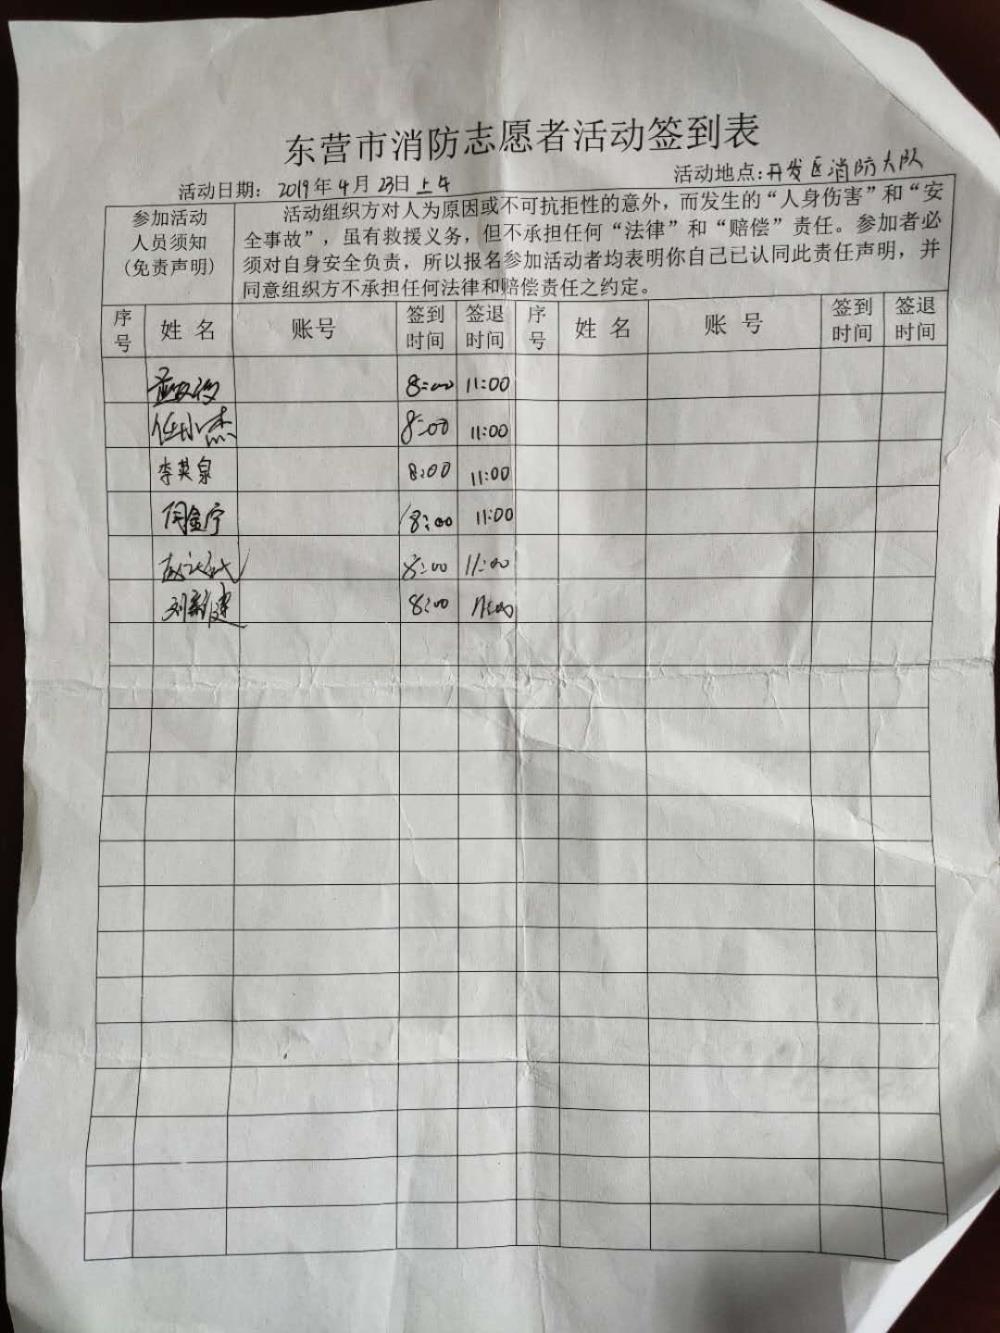 东营市消防志愿者活动签到表
活动日期: 2019年4月23日上午 活动地点:开发区消防大队
参加活动
人员须知
(免责声明)
活动组织方对人为原因或不可抗拒性的意外，而发生的“人身伤害”和“安
全事故”，虽有救援义务，但不承担任何“法律”和“赔偿”责任。参加者必
须对自身安全负责，所以报名参加活动者均表明你自己已认同此责任声明，并
同意组织方不承担任何法律和赔偿责任之约定。
序号 姓名 账号 签到时间 签退时间 序号 姓名 账号 签到时间 签退时间
8:00 11:00
任小杰 8:00 11:00
李英泉 8:00 11:00
闫金宁 8:00 11:00
8:00 11:00
刘新建 8:00 11:00